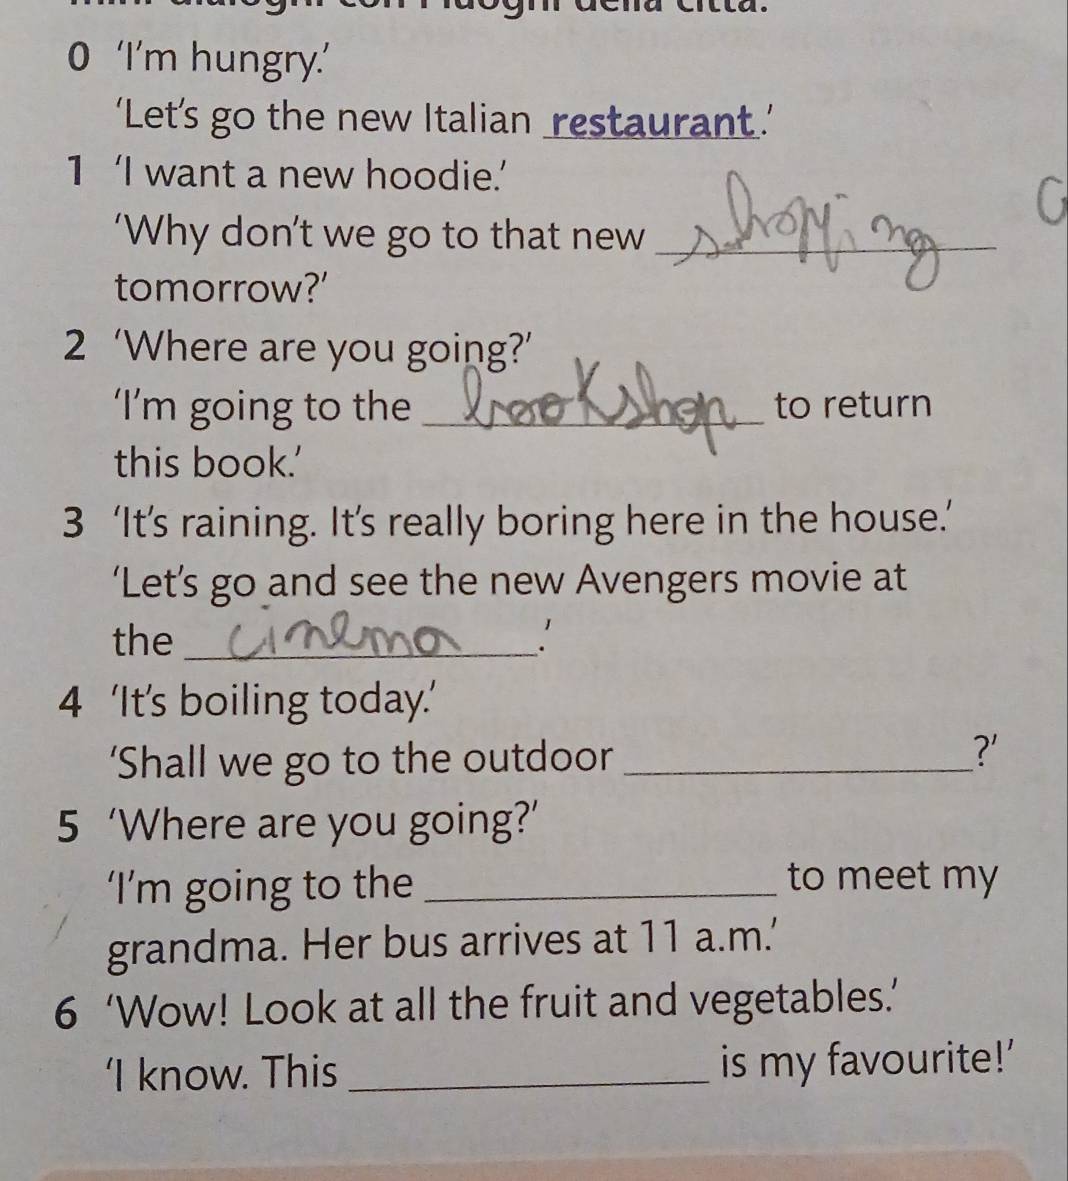 0 ‘I’m hungry.’
‘Let’s go the new Italian restaurant.’
1 ‘I want a new hoodie.’
‘Why don’t we go to that new shopping
tomorrow?’
2 ‘Where are you going?’
‘I’m going to the bookshop to return
this book.’
3 ‘It’s raining. It’s really boring here in the house.’
‘Let’s go and see the new Avengers movie at
the cinema.’
4 ‘It’s boiling today.’
‘Shall we go to the outdoor ________?’
5 ‘Where are you going?’
‘I’m going to the ________ to meet my
grandma. Her bus arrives at 11 a.m.’
6 ‘Wow! Look at all the fruit and vegetables.’
‘I know. This ________ is my favourite!’